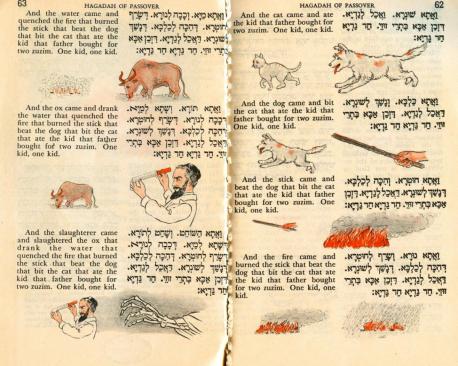 HAGADAH OF PASSOVER 62
And the cat came and ate
the kid that father bought
for two zuzim. One kid,
one kid.
וְאָתָא שׁוּנְרָא. וְאָכַל לְגַדְיָא.
דְּזַבִּן אַבָּא בִּתְרֵי זוּזֵי. חַד
גַּדְיָא חַד גַּדְיָא:
And the dog came and bit
the cat that ate the kid
that father bought for two
zuzim. One kid, one kid.
וְאָתָא כַלְבָּא. וְנָשַׁךְ לְשׁוּנְרָא.
דְּאָכַל לְגַדְיָא. דְּזַבִּן אַבָּא בִּתְרֵי
זוּזֵי. חַד גַּדְיָא חַד גַּדְיָא:
And the stick came and
beat the dog that bit the cat
that ate the kid that father
bought for two zuzim. One
kid, one kid.
וְאָתָא חוּטְרָא. וְהִכָּה לְכַלְבָּא.
דְּנָשַׁךְ לְשׁוּנְרָא. דְּאָכַל לְגַדְיָא.
דְּזַבִּן אַבָּא בִּתְרֵי זוּזֵי. חַד
גַּדְיָא חַד גַּדְיָא:
And the fire came and
burned the stick that beat the
dog that bit the cat that ate
the kid that father bought
for two zuzim. One kid, one
kid.
וְאָתָא נוּרָא. וְשָׂרַף לְחוּטְרָא.
דְּהִכָּה לְכַלְבָּא. דְּנָשַׁךְ לְשׁוּנְרָא.
דְּאָכַל לְגַדְיָא. דְּזַבִּן אַבָּא בִּתְרֵי
זוּזֵי. חַד גַּדְיָא חַד גַּדְיָא:
63 HAGADAH OF PASSOVER
And the water came and
quenched the fire that burned
the stick that beat the dog
that bit the cat that ate the
kid that father bought for
two zuzim. One kid, one kid.
וְאָתָא מַיָּא. וְכָבָה לְנוּרָא. דְּשָׂרַף
לְחוּטְרָא. דְּהִכָּה לְכַלְבָּא. דְּנָשַׁךְ
לְשׁוּנְרָא. דְּאָכַל לְגַדְיָא. דְּזַבִּן
אַבָּא בִּתְרֵי זוּזֵי. חַד גַּדְיָא חַד גַּדְיָא:
And the ox came and drank
the water that quenched the
fire that burned the stick that
beat the dog that bit the cat
that ate the kid that father
bought for two zuzim. One
kid, one kid.
וְאָתָא תוֹרָא. וְשָׁתָא לְמַיָּא.
דְּכָבָה לְנוּרָא. דְּשָׂרַף לְחוּטְרָא.
דְּהִכָּה לְכַלְבָּא. דְּנָשַׁךְ לְשׁוּנְרָא.
דְּאָכַל לְגַדְיָא. דְּזַבִּן אַבָּא בִּתְרֵי
זוּזֵי. חַד גַּדְיָא חַד גַּדְיָא:
And the slaughterer came
and slaughtered the ox that
drank the water that
quenched the fire that burned
the stick that beat the dog
that bit the cat that ate the
kid that father bought for
two zuzim. One kid, one kid.
וְאָתָא הַשּׁוֹחֵט. וְשָׁחַט לְתוֹרָא.
דְּשָׁתָא לְמַיָּא. דְּכָבָה לְנוּרָא.
דְּשָׂרַף לְחוּטְרָא. דְּהִכָּה לְכַלְבָּא.
דְּנָשַׁךְ לְשׁוּנְרָא. דְּאָכַל לְגַדְיָא.
דְּזַבִּן אַבָּא בִּתְרֵי זוּזֵי. חַד
גַּדְיָא חַד גַּדְיָא: